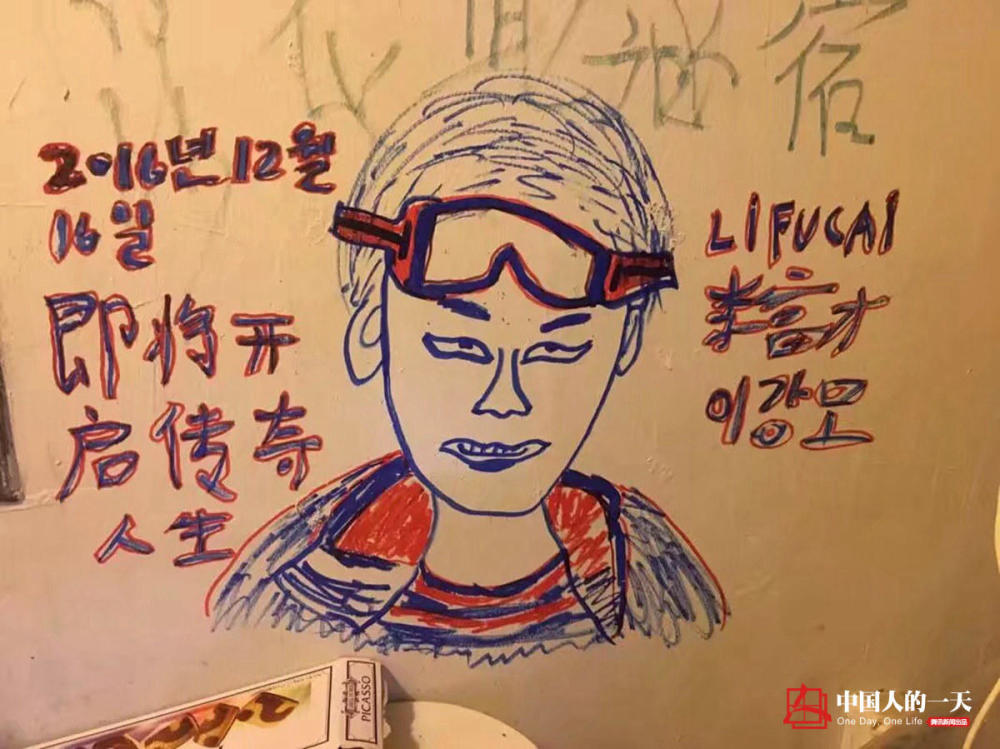 2016년 12월
16일
即将开
启传奇
人生
LiFUCAI
李富才
이강모
PICASSO
中国人的一天
One Day, One Life 腾讯新闻出品